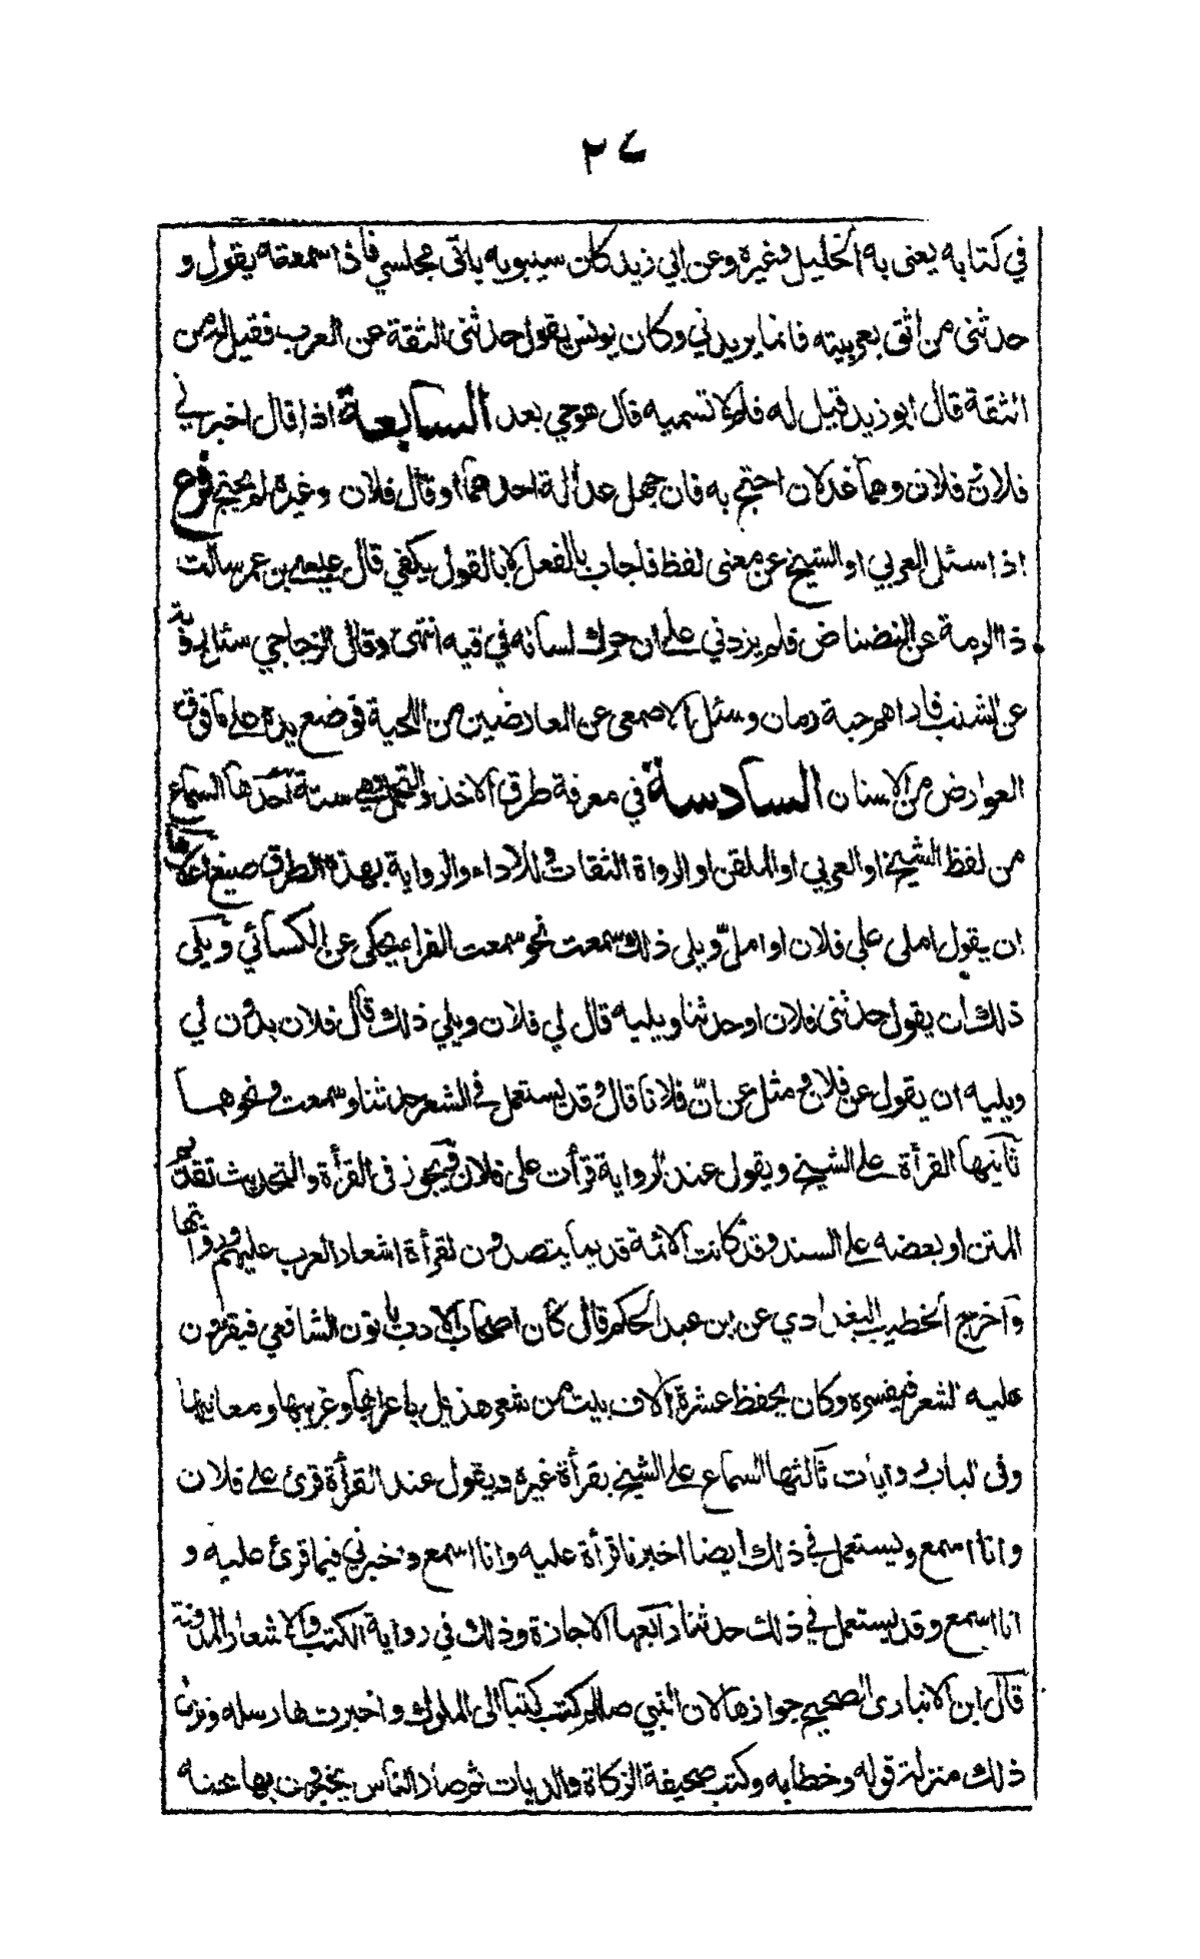 ٢٧
في كتابه يعني به الخليل وغيره وعن ابي زيد كان سيبويه ياتى مجلسي فاذا سمعته يقول و
حدثنى من اثق بعربيته فانما يريدني وكان يونس يقول حدثنى الثقة عن العرب فقيل له من
الثقة قال ابو زيد قيل له فلم لا تسميه قال هو حي بعد السابعة اذا قال اخبرني
فلان وفلان وهما عدلان احتج به فان جهل عدالة احدهما او قال فلان وغيره لم يحتج فرع
اذا سئل العربي او الشيخ عن معنى لفظ فاجاب بالفعل لا بالقول يكفي قال عيسى بن عمر سالت
ذا الرمة عن النضناض فلم يزدني على ان حرك لسانه في فيه انتهى وقال الزجاجي سئل رؤبة
عن الشنب فاراهم حبة رمان وسئل الاصمعى عن العارضين من اللحية فوضع يده على ما فوق
العوارض من الاسنان السادسة في معرفة طرق الاخذ والتحمل وهي ستة احدها السماع
من لفظ الشيخ او العربي او الملقن او الرواة الثقات وللاداء والرواية بهذه الطرق صيغ اعلاها
ان يقول املى على فلان او امل ويلى ذلك سمعت نحو سمعت الفراء يحكى عن الكسائي ويلى
ذلك ان يقول حدثنى فلان او حدثنا ويليه قال لي فلان ويلي ذلك قال فلان بدون لي
ويليه ان يقول عن فلان ومثل عن انّ فلانا قال وقد يستعمل في الشعر حدثنا وسمعت ونحوهما
ثانيها القرأة على الشيخ ويقول عند الرواية قرأت على فلان ويجوز في القرأة والتحديث تقديم
المتن او بعضه على السند وقد كانت الائمة قديما يتصدون لقرأة اشعار العرب عليهم وروايتها
واخرج الخطيب البغدادي عن ابن عبد الحكم قال كان اصحاب الادب ياتون الشافعي فيقرؤن
عليه الشعر فيفسره وكان يحفظ عشرة الاف بيت من شعر هذيل باعرابها وغريبها ومعانيها
وفى الباب روايات ثالثها السماع على الشيخ بقرأة غيره ويقول عند القرأة قرئ على فلان
وانا اسمع ويستعمل في ذلك ايضا اخبرنا قرأة عليه وانا اسمع واخبرني فيما قرئ عليه و
انا اسمع وقد يستعمل في ذلك حدثنا رابعها الاجازة وذلك في رواية الكتب والاشعار المدونة
قال ابن الانبارى الصحيح جوازها لان النبي صللم كتب كتبا الى الملوك واخبرت بها رسله ونزل
ذلك منزلة قوله وخطابه وكتب صحيفة الزكاة والديات ثم صار الناس يخبرون بها عنه